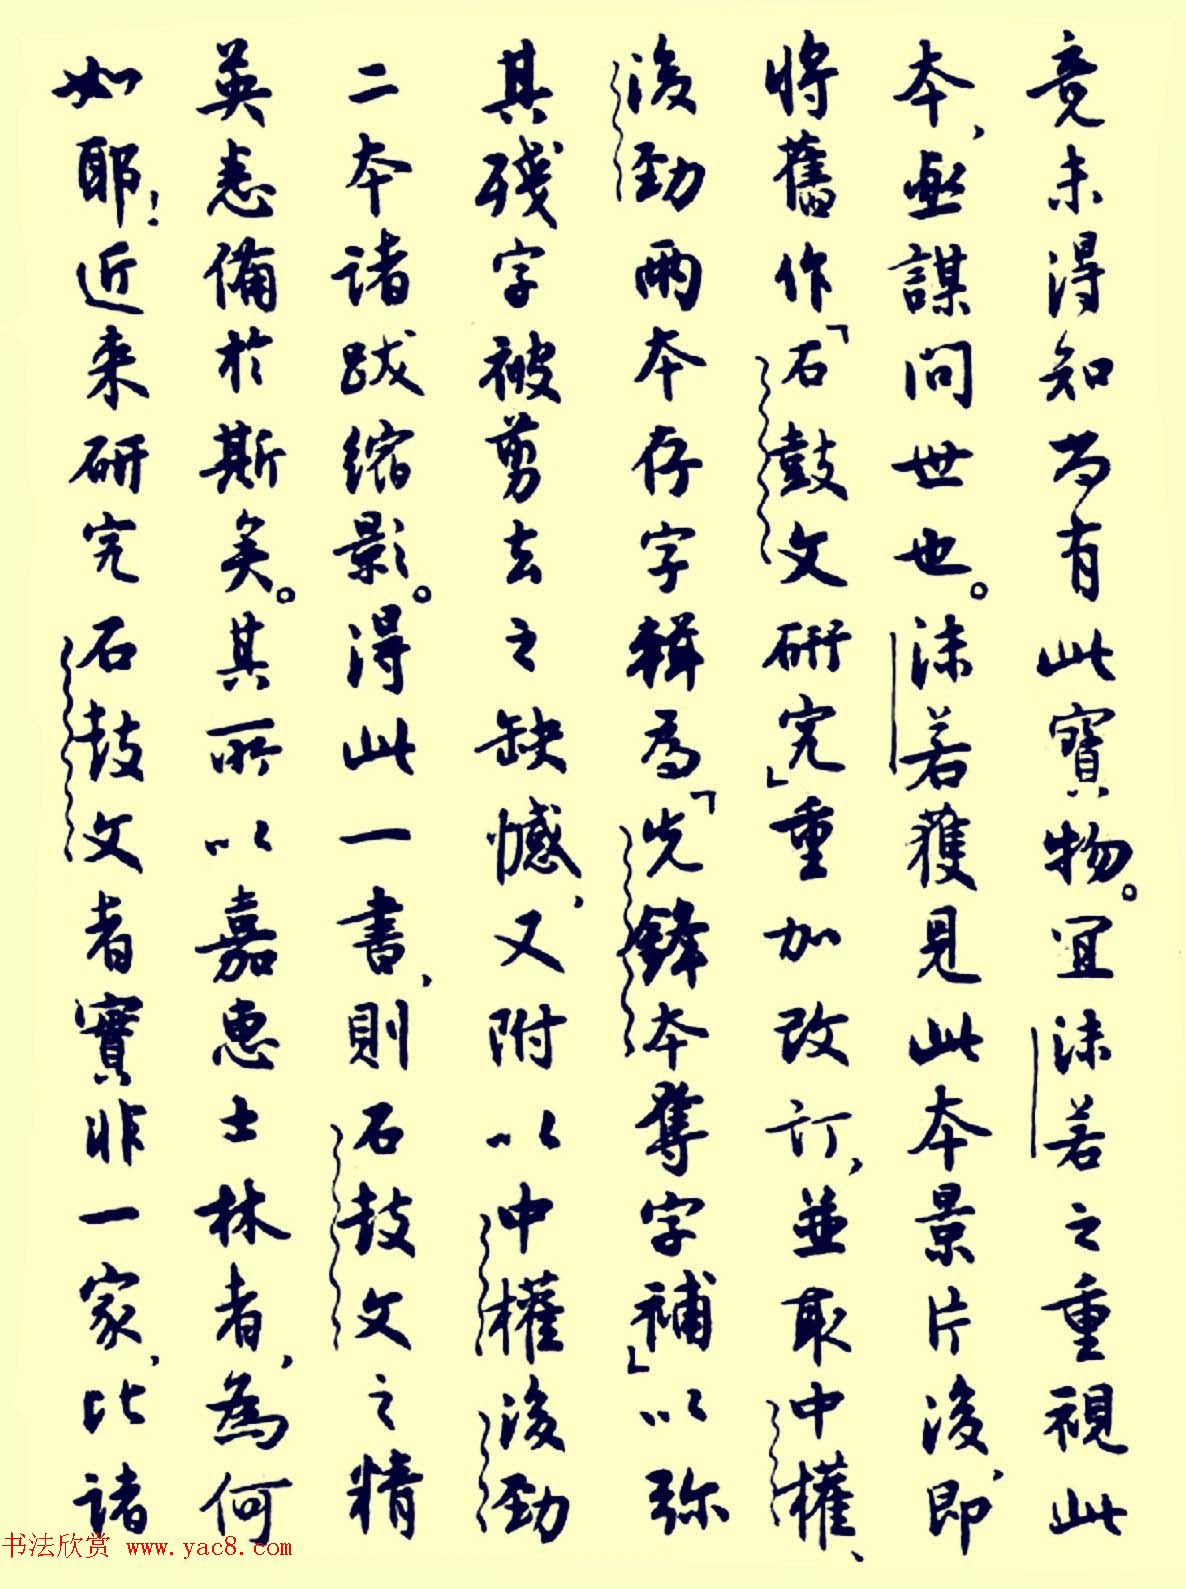 竟未得知为有此寶物。宜沫若之重視此
本,亟謀問世也。沫若獲見此本景片後,即
將舊作「石鼓文研究」重加改訂,並取中權、
後勁兩本存字輯為「先鋒本奪字補」以弥
其殘字被剪去之缺憾,又附以中權後勁
二本諸跋缩影。得此一書,則石鼓文之精
英悉備於斯矣。其所以嘉惠士林者,為何
如耶!近来研究石鼓文者實非一家,比諸
书法欣赏 www.yac8.com